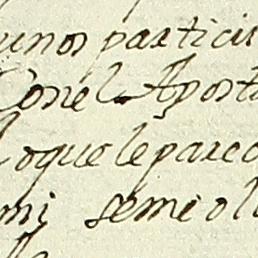 unos partici
Con el Apost
lo que le parec
mi se me ol